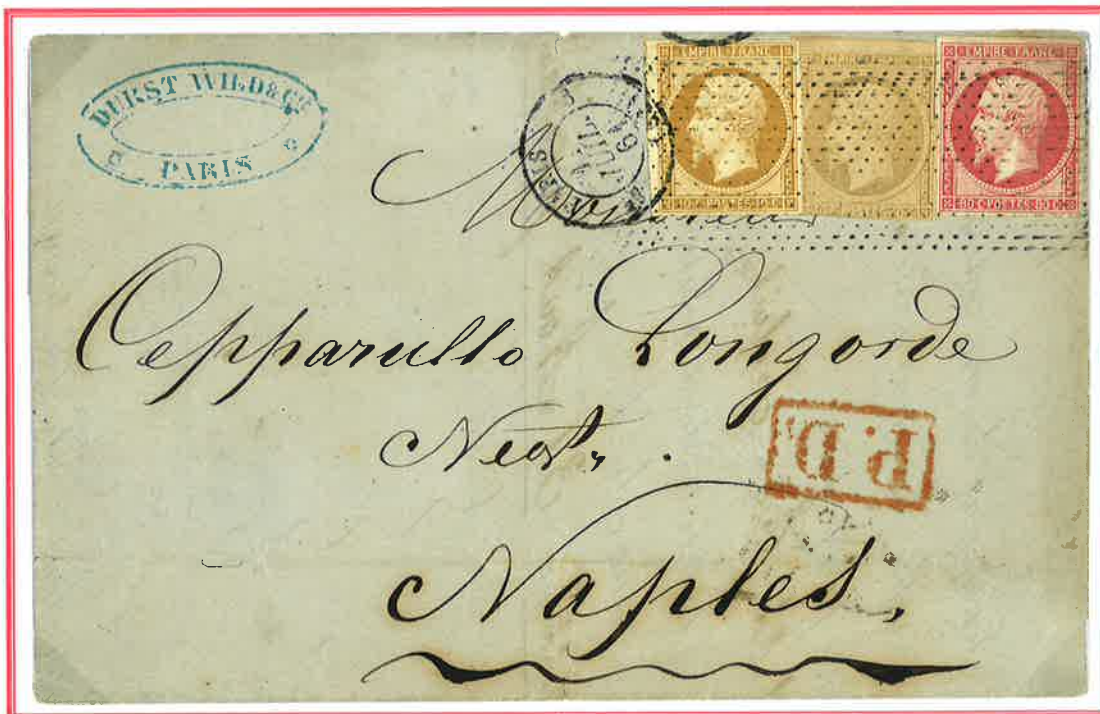 DURST WILD & Cº
PARIS
EMPIRE FRANC
10 C POSTES 10 C
EMPIRE FRANC
80 C POSTES 80 C
PARIS
JUIL
Cepparullo Longorde
Negt.
P.D.
Naples,